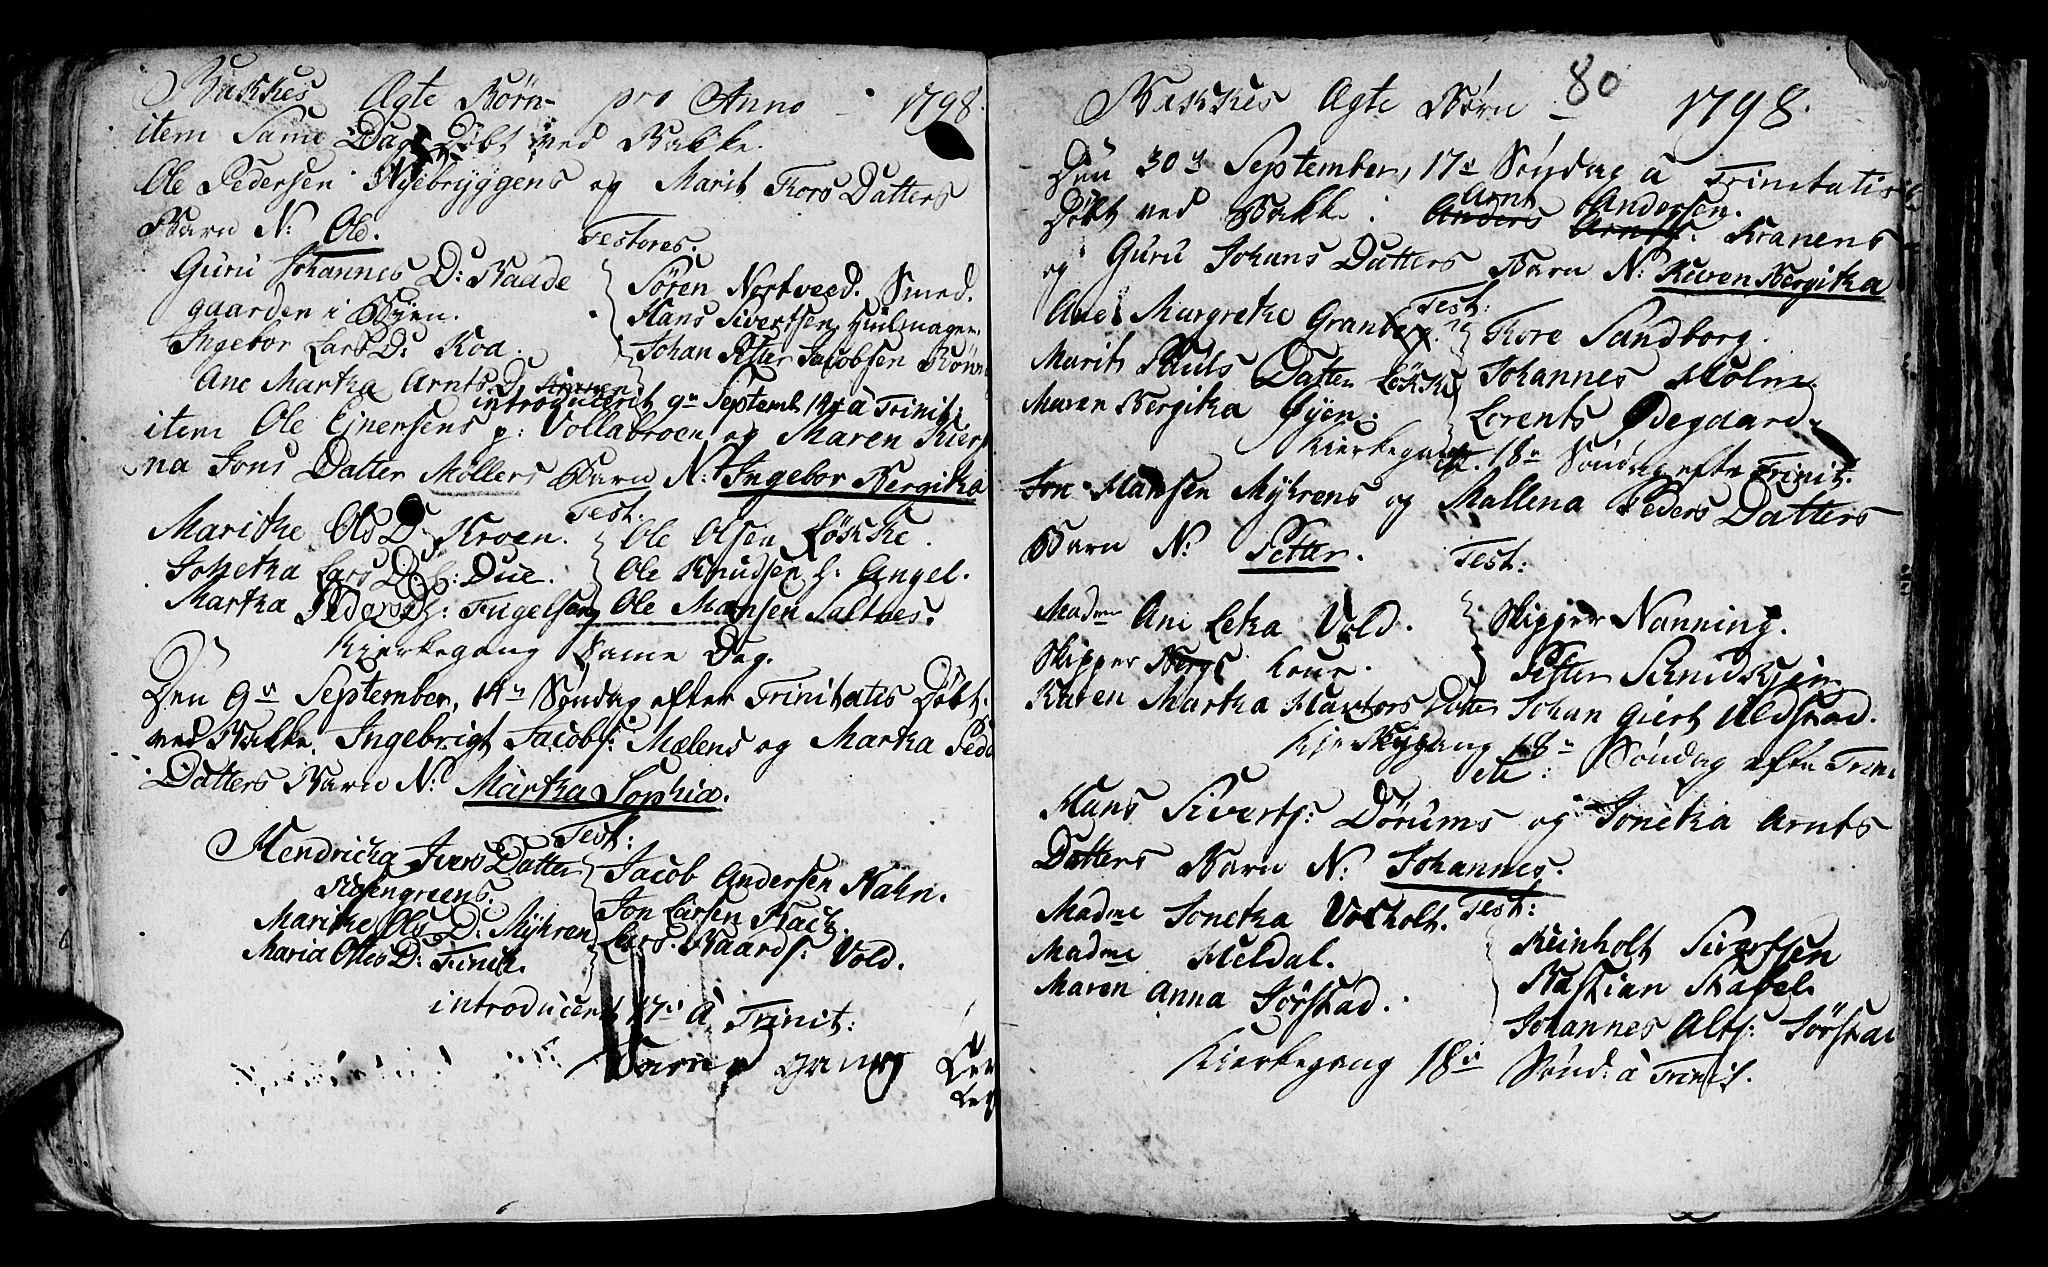 Bakkes Ægte Børn pro Anno - 1798.
item Same Dag Døbt ved Bakke.
Ole Pedersen Nyebryggens og Marit Tors Datters
Barn N: Ole.
Testores.
Guru Johannes D: Baade
gaarden i Byen.
Ingebor Lars D: Roa.
Ane Martha Arnts D.
Sören Nortveed. Smed.
Hans Sivertsen Hiulmager.
Johan Peter Jacobsen Rönn
introduceret 9de Septemb. 14 à Trinit:
item Ole Ejnersens p: Vollabroen og Maren Kier
na Jons Datter Møllers Barn N: Ingebor Bergitha
Test:
Marithe Ols D: Kroen.
Johetha Lars D: h: Due.
Martha Peders D h: Fugelsang
Ole Olsen Løkke.
Ole Knudsen h: Angel.
Ole Monsen Saltnes.
Kierkegang Same Dag.
Den 9de September, 14de Søndag efter Trinitatis Døbt
ved Bakke. Ingebrigt Jacobs: Mælens og Martha Peds
Datters Barn N: Martha Sophia.
Test:
Hendricha Ivers Datter
Rosengreens.
Marithe Ols D: Myhren
Maria Ottes D: Trinit.
Jacob Andersen Hahn.
Jon Larsen Bach.
Lars Baards: Vold.
introduceret 17de à Trinit:
80
Bakkes Ægte Børn - 1798.
Den 30de September, 17de Søndag à Trinitatis
Døbt ved Bakke: Arnt Andersen Kranens
og Guru Johans Datters Barn N: Karen Bergitha
Test:
Ane Margrethe Granberg.
Marit Pauls Datter Løkke
Maren Bergitha Øyen.
Tore Sandborg.
Johannes Holm.
Lorents Ødegaard.
Kierkegang 18de Søndag efter Trinit.
Jon Hansen Myhrens og Mallena Peders Datters
Barn N: Petter.
Test:
Madme Ane Letha Vold.
Skipper Bergs Kone.
Karen Martha Havtors Datter
Skipper Nanning.
Petter Schmidt
Johan Giert Uldstad.
Kierkegang 18de Søndag efter Trini
Hans Siverts: Dørums og Jonetha Arnts
Datters Barn N: Johannes.
Test:
Madme Jonetha Voxholt.
Madme Meldal.
Maren Anna Sörstad.
Reinholt Sivertsen
Bastian Stabel
Johannes Alts: Sörstad
Kierkegang 18de Sönd: à Trinit.